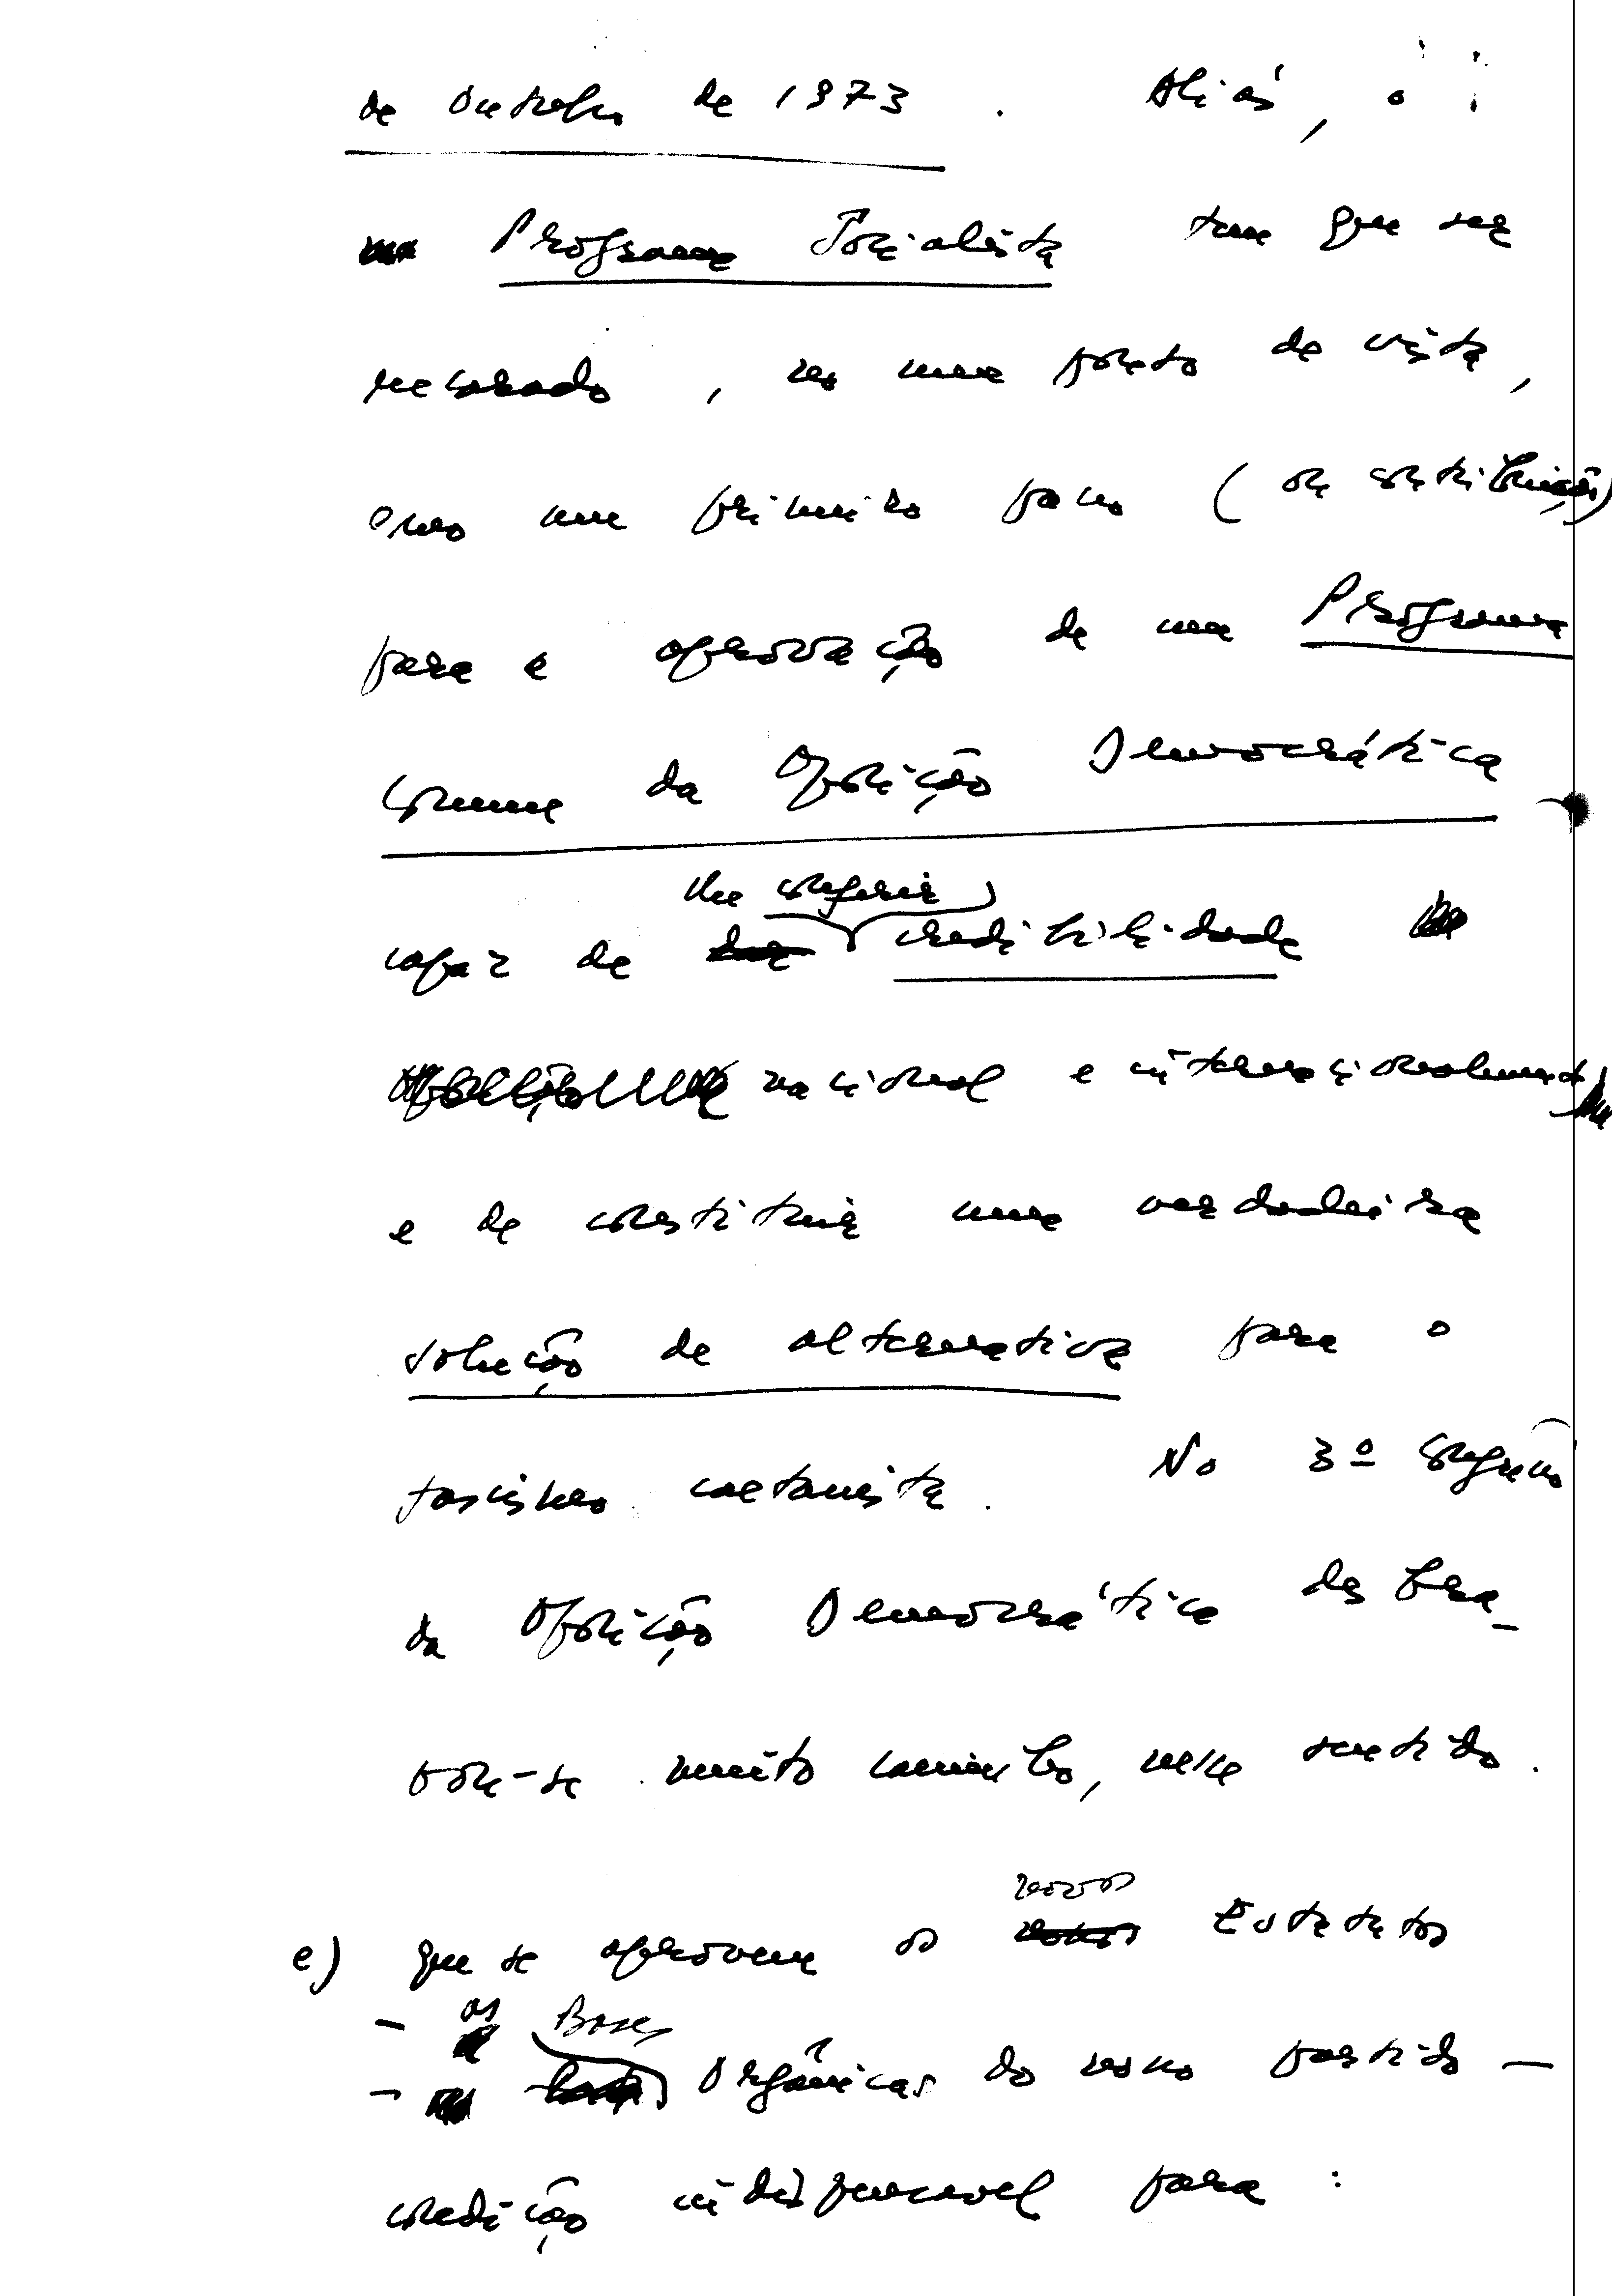 de Outubro de 1973. Aliás, o
Programa Socialista tem que ser
encarado, no meu ponto de vista,
como um primeiro passo (ou contribuição)
para a aprovação de um Programa
Comum da Oposição Democrática
lhe conferir
capaz de dar credibilidade
nacional e internacionalmente
e de constituir uma verdadeira
solução de alternativa para o
fascismo caetanista. No 3º Congresso
da Oposição Democrática des bra-
vou-se muito caminho, nesse sentido.
novos
e) que se aprovem os novos Estatutos
- as Bases
- Orgânicas do nosso partido -
condição indispensavel para: